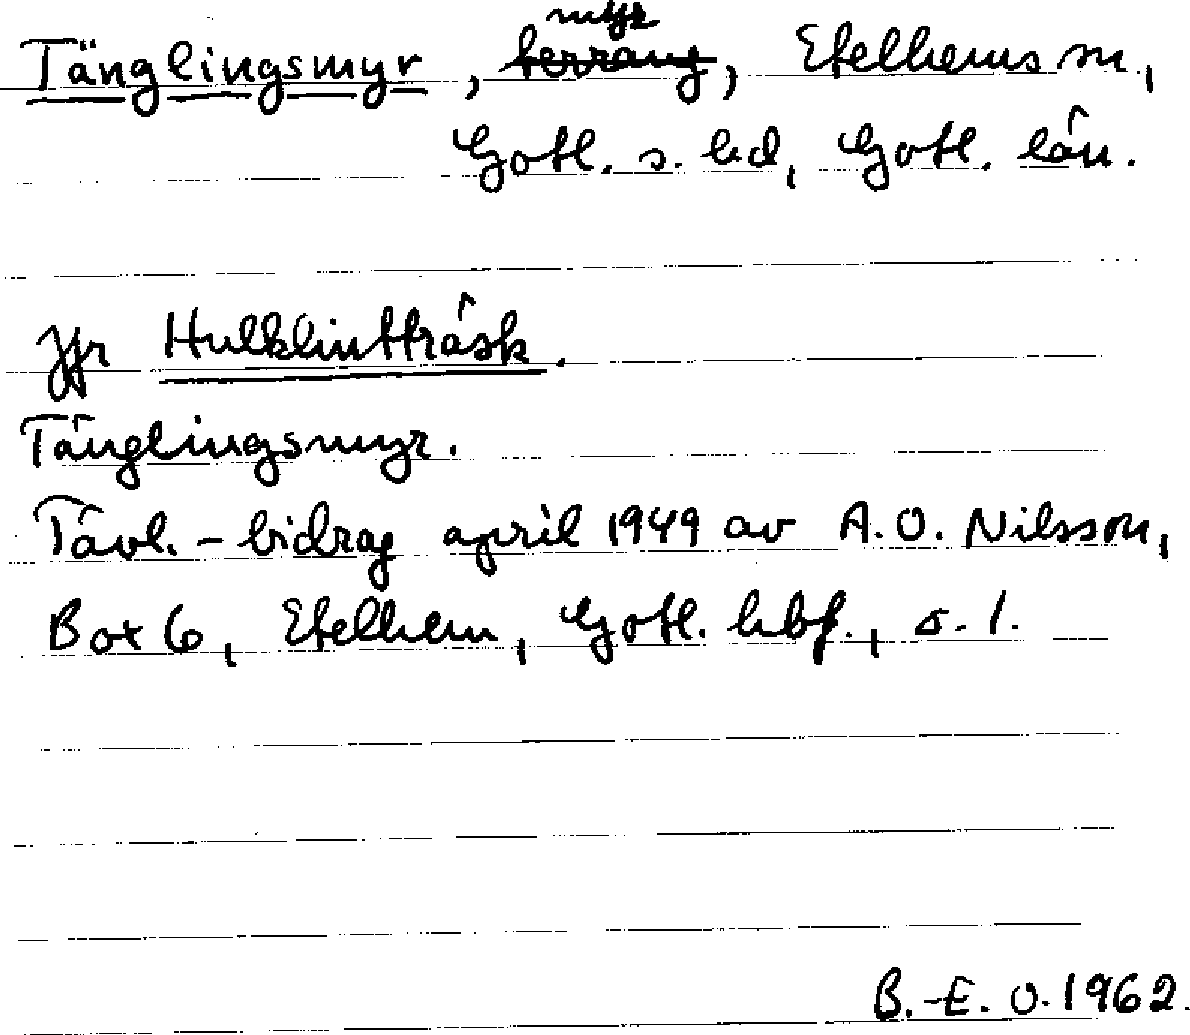 myr
Tänglingsmyr, terräng, Etelhems sn.,
Gotl. s. hd, Gotl. län.
Jfr Hulklintträsk.
Tänglingsmyr.
Tävl.-bidrag april 1949 av A.O. Nilsson,
Box 6, Etelhem, Gotl. hbf., s. 1.
B.-E. O. 1962.